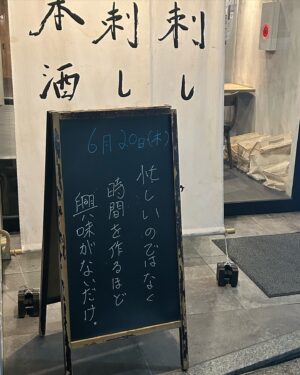 刺し
刺し
本酒
6月20日(木)
忙しいのではなく
時間を作るほど
興味がないだけ。